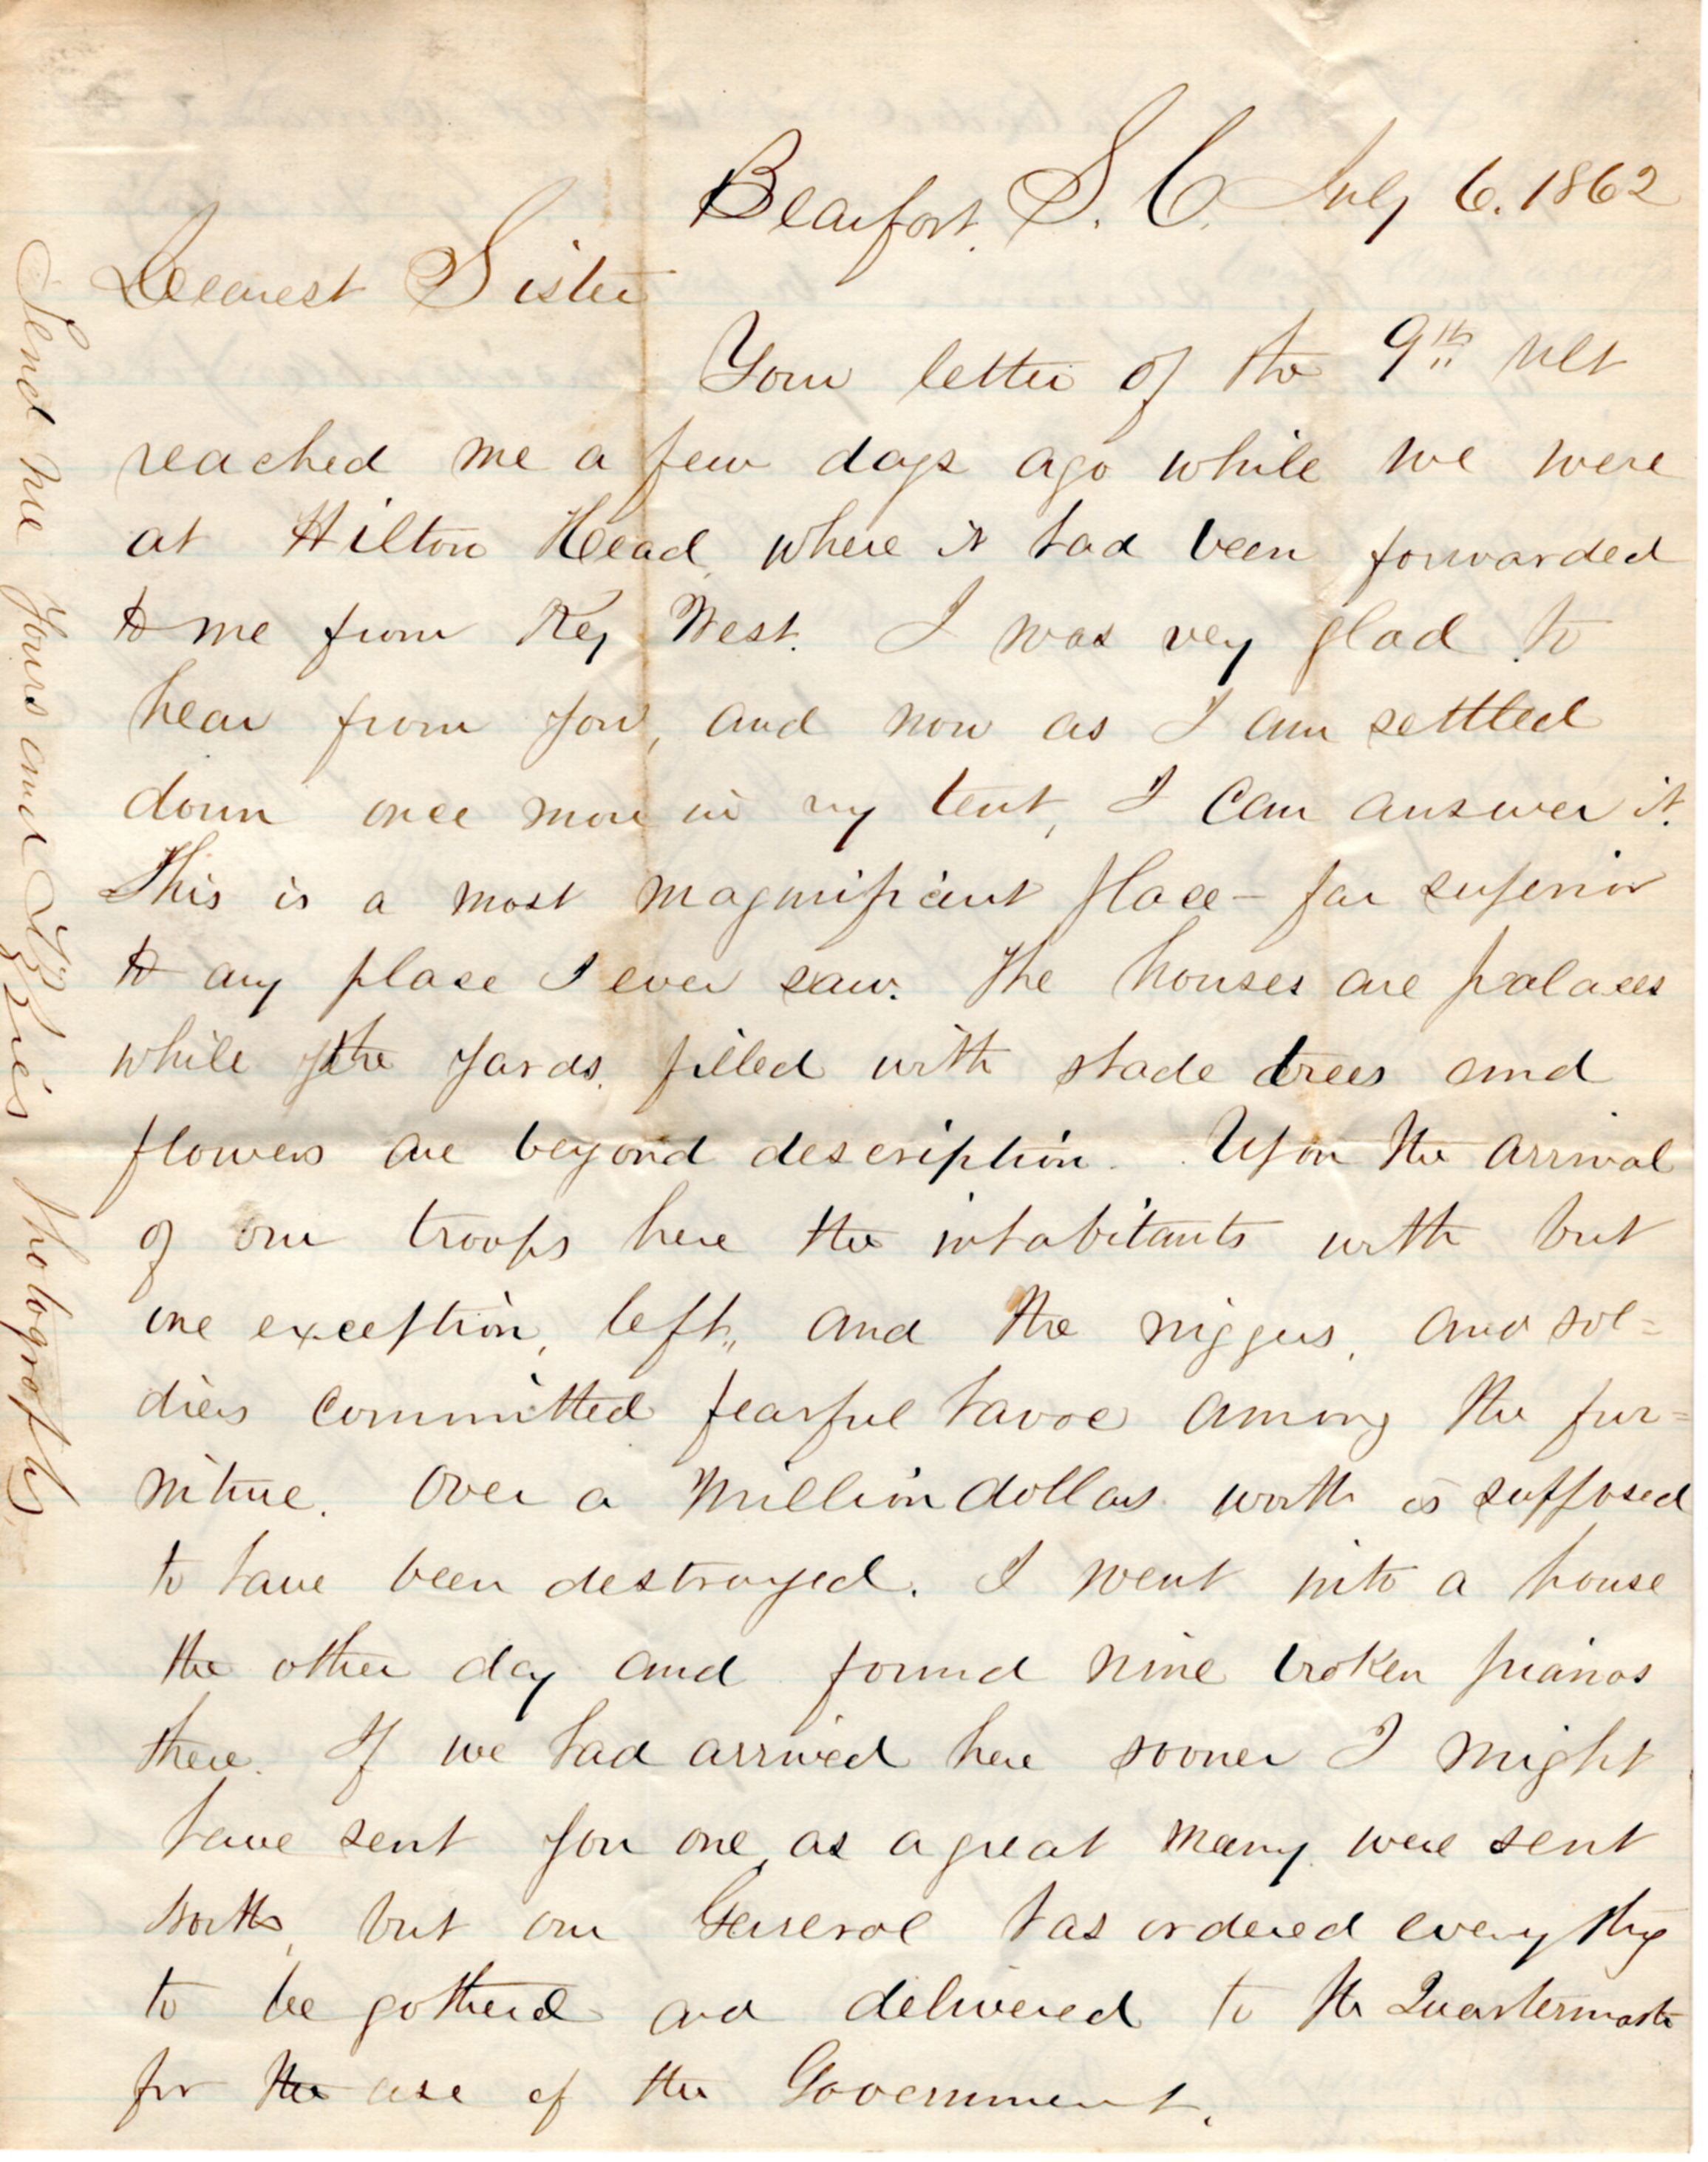 Beaufort. S. C. July 6. 1862
Dearest Sister
Your letter of the 9th ult
reached me a few days ago while we were
at Hilton Head, where it had been forwarded
to me from Key West. I was very glad to
hear from you, and now as I am settled
down once more in my tent, I can answer it.
This is a most magnificent place - far superior
to any place I ever saw. The houses are palaces
while the yards, filled with shade trees and
flowers are beyond description. Upon the arrival
of our troops here the inhabitants with but
one exception, left, and the niggers, and sol=
diers committed fearful havoc among the fur=
niture. Over a million dollars worth is supposed
to have been destroyed. I went into a house
the other day and found nine broken pianos
there. If we had arrived here sooner I might
have sent you one, as a great many were sent
North, but our General has ordered everything
to be gathered and delivered to the Quartermaster
for the use of the Government.
Send me yours and Lizzie's photographs.